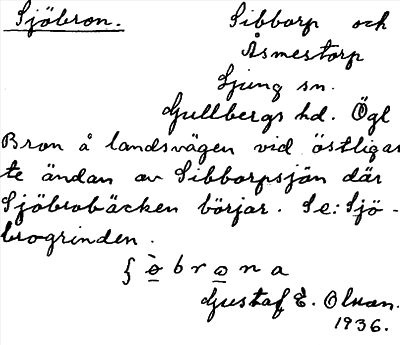 Sjöbron. Sibborp och
Åsmestorp
Ljung sn.
Gullbergs hd. Ögl
Bron å landsvägen vid östligas
te ändan av Sibborpsjön där
Sjöbrobäcken börjar. Se: Sjö-
brogrinden.
ʃö̀brona
Gustaf E. Olsson.
1936.